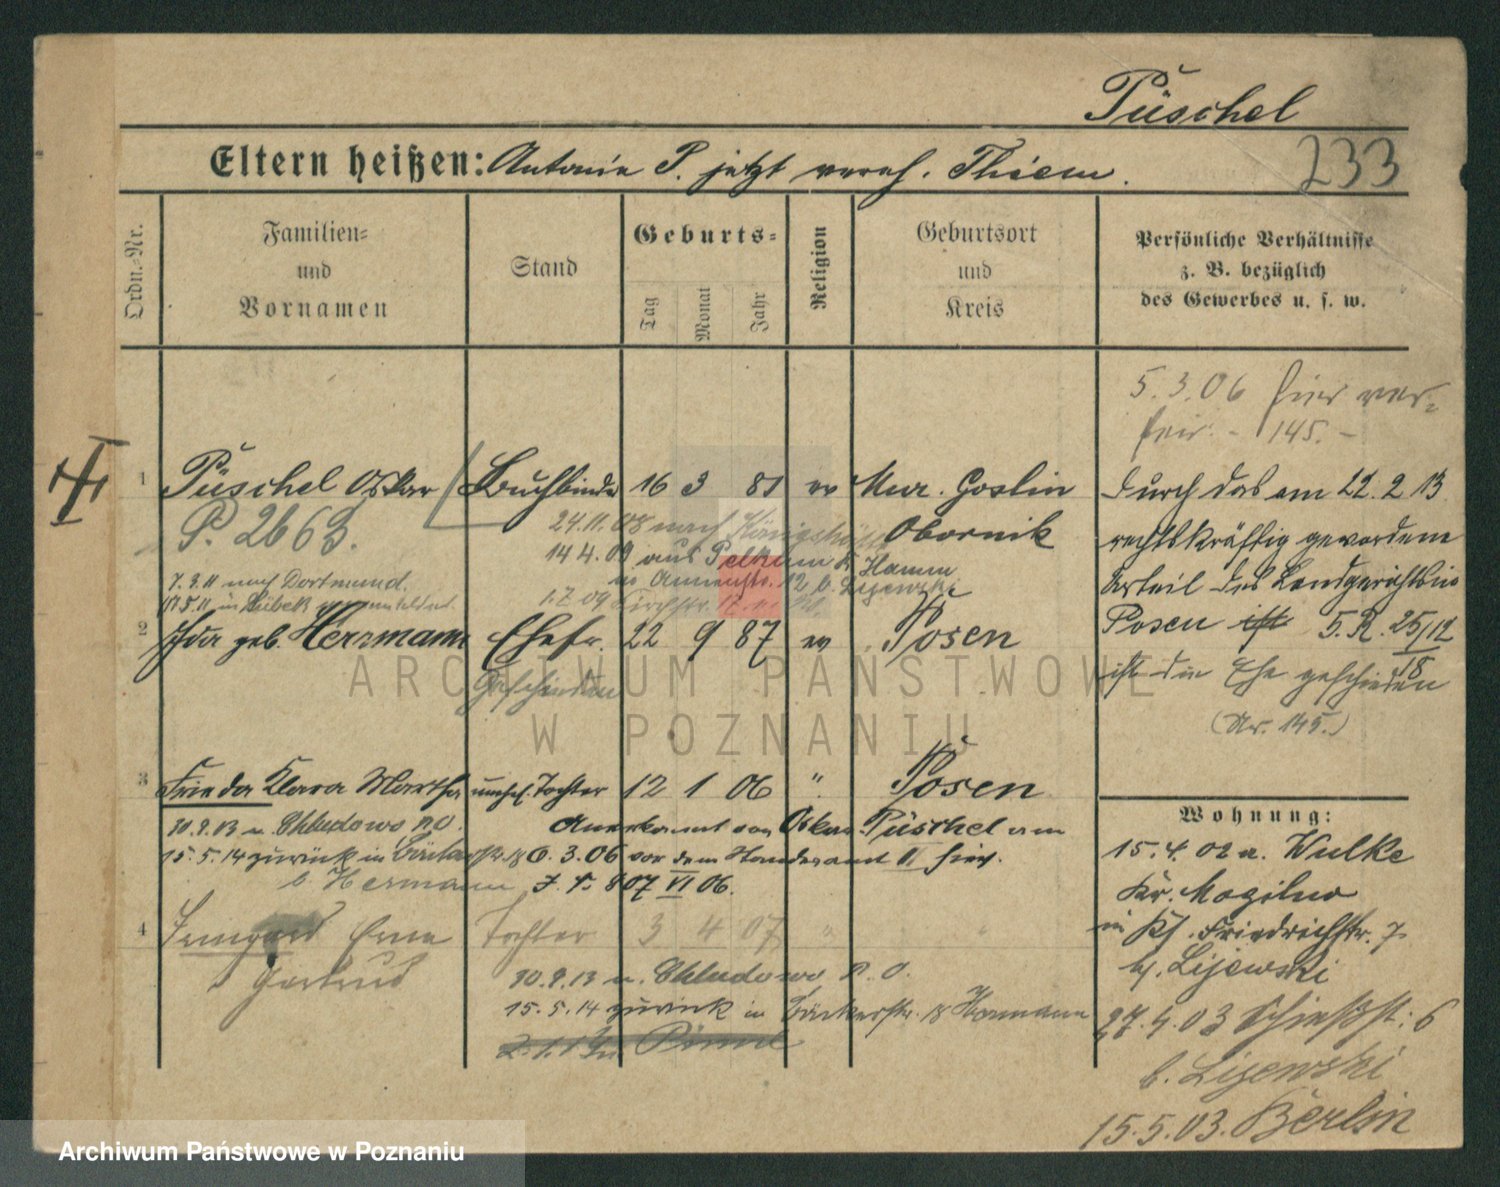 Püschel
Eltern heißen: Antonie P. jetzt vereh. Thiem.
233
Ordn.-Nr.
Familien-
und
Vornamen
Stand
Geburts-
Tag
Monat
Jahr
Religion
Geburtsort
und
Kreis
Persönliche Verhältnisse
z. B. bezüglich
des Gewerbes u. s. w.
5.3.06 hier ver-
heir. - 145. -
1 Püschel Oskar Buchbinder 16 3 81 ev Mur. Goslin
Obornik
P. 2663.
24.11.08 nach
14.4.09 aus Pelkum Kr. Hamm
in Annenstr. 12 b. Lijewski
7.3.11 nach Dortmund.
1.7.09
17.5.11 in Lübek
durch das am 22.2.13
rechtskräftig gewordene
Urteil des Landgerichts in
Posen ist 5.R. 25/12
18
ist die Ehe geschieden
(Nr. 145.)
2 Ida geb. Herrmann Ehefr. 22 9 87 ev Posen
Geschieden
3 Frieda Klara Martha unehel. Tochter 12 1 06 " Posen
30.9.13 n. Chludowo P.O.
15.5.14 zurück in Bäckerstr. 18
b. Hermann
Anerkannt von Oskar Püschel am
6.3.06 vor dem Standesamt II hier.
J. N. 807 VI 06.
4 Irmgard Erna Tochter 3 4 07 " "
Gertrud
30.9.13 n. Chludowo P.O.
15.5.14 zurück in Bäckerstr. 18 Hermann
Wohnung:
15.4.02 a. Wulke
Kr. Mogilno
in Kl. Friedrichstr. 7
bj. Lijewski
27.4.03 Schießst. 6
b. Lijewski
15.5.03. Berlin
ARCHIWUM PAŃSTWOWE
W POZNANIU
Archiwum Państwowe w Poznaniu